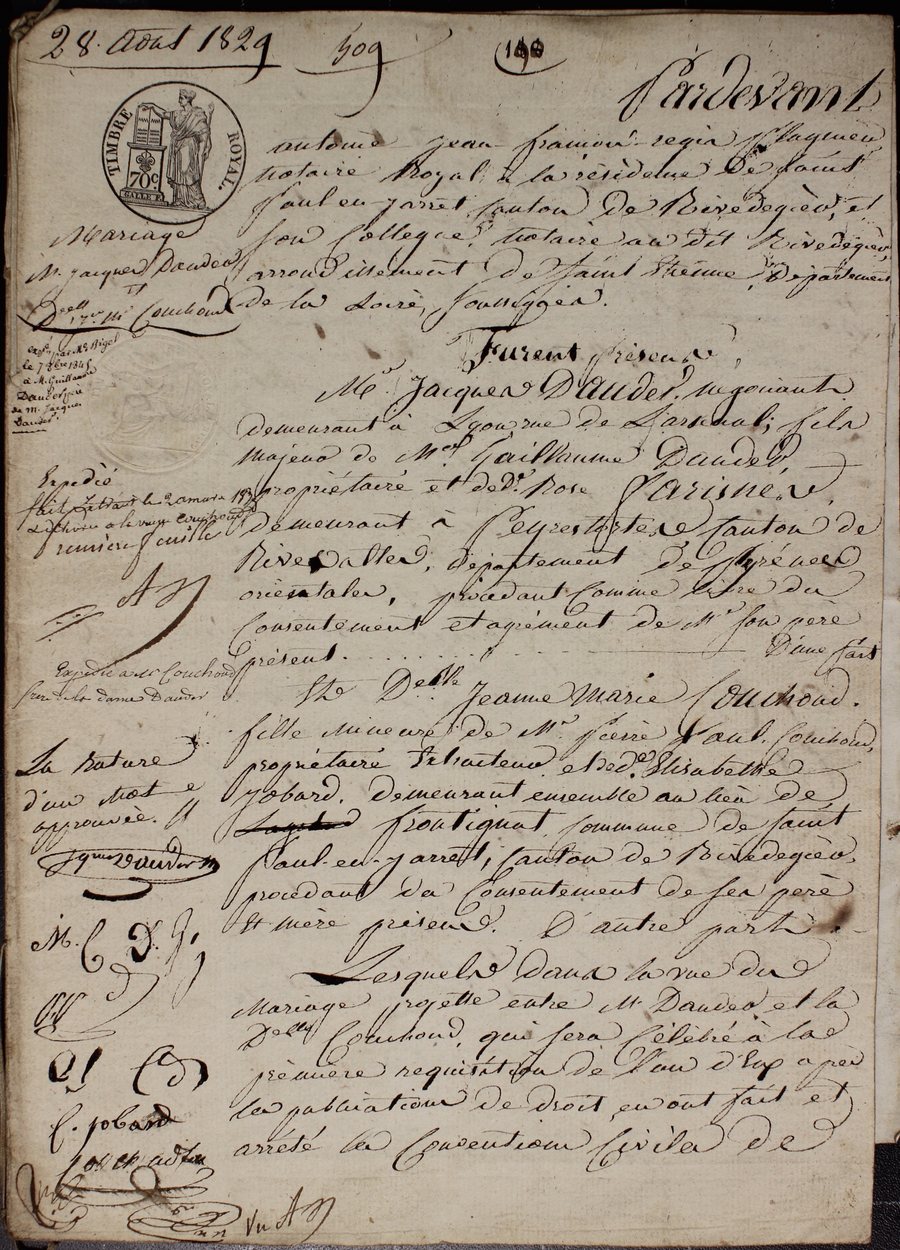 28. Aout 1829
509
Pardevant
TIMBRE ROYAL.
70c.
antoine jean françois regis
notaire Royal à la résidence De saint
Paul-en-jarret Canton De Rivedegier, et
son Collegue, notaire au dit Rivedegier,
arrondissement de Saint Etienne, Département
de la Loire, soussignés.
Mariage
Mr. jacques Dauder
et
Delle. Couchoud
Furent présens,
Mr. Jacques Dauder, negociant
demeurant à Lyon rue de L'arsenal; fils
majeur de Mr. Guillaume Dauder,
propriétaire et de De. Rose
demeurant à Peyrestortes, Canton de
Rivesaltes, département des Pyrénées
orientales, procédant Comme libre du
Consentement et agrément de Mr. son père
présent. D'une part
Et Delle Jeanne Marie Couchoud.
fille mineure de Mr. Pierre Paul Couchoud,
propriétaire et de De. Elisabethe
Jobard. demeurant ensemble au lieu de
frontignat commune de Saint
Paul-en-jarret, Canton de Rivedegier,
procédant du Consentement de ses père
et mère présens. D'autre part.
Lesquels dans la vue du
Mariage projetté entre Mr. Dauder et la
Delle Couchoud, qui sera Célébré à la
première requisition de l'un d'Eux après
les publications de droit, en ont fait et
arrêté les Conventions Civiles de
le 7 bre 1845
à M. Guillaume
Dauder
de m. Jacques
Dauder
Expédié
première feuille
Expédié a Mr Couchoud
La Rature
d'un Mot
approuvée.
M. C D. J.
C. jobard
vu